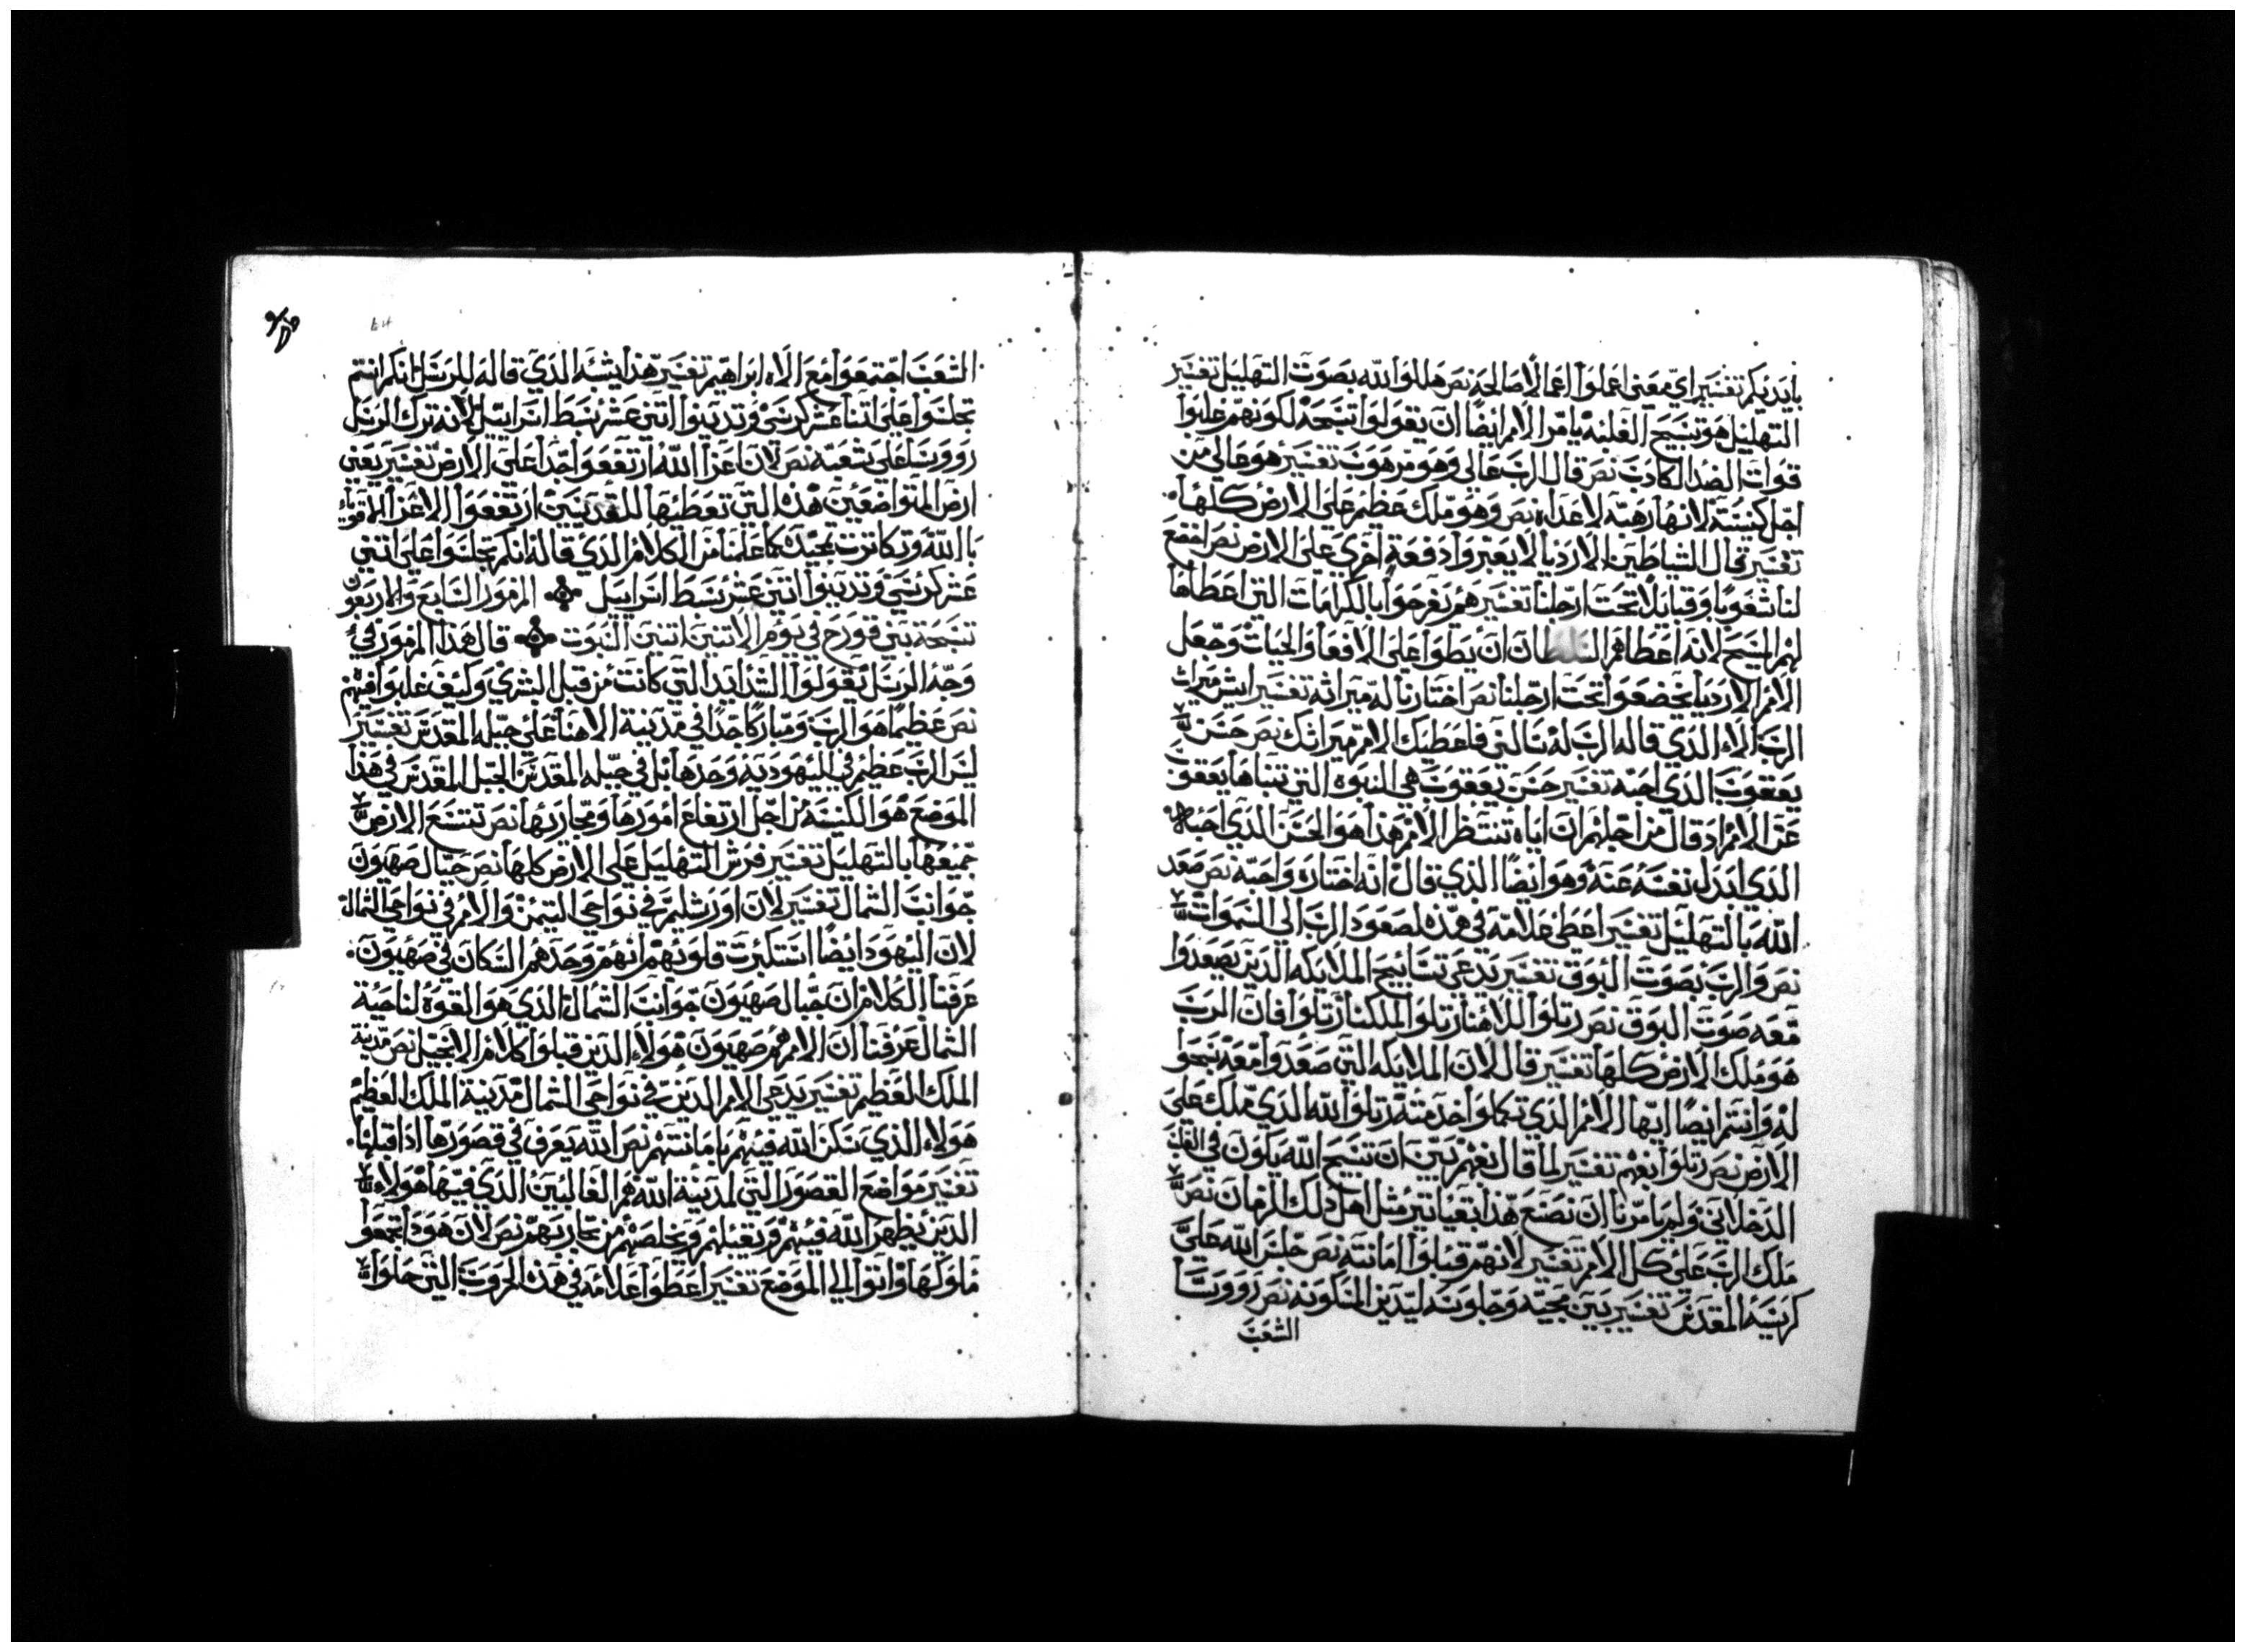 بايديكم تفسير اي معنى اعملوا اعمالا صالحه نص هللوا الله بصوت التهليل تفسير
التهليل هو تسبيح الغلبه يامر الامم ايضا ان يقولوا تسبحه لكونهم غلبوا
قوات الضد الكادب نص قال الرب عالي وهو مرهوب تفسير هو عالي من
اجل كنيسته لانها رهبه لاعداه نص وهو ملك عظيم على الارض كلها
تفسير قال الشياطين الارديا لا يعبروا دفعة اخري على الارض نص اخضع
لنا شعوبا وقبايلا تحت ارجلنا تفسير هم يفرحوا بالكرامات التي اعطاها
لهم المسيح لانه اعطاهم السلطان ان يطوا على الافعا والحيات وجعل
الامم الارديا يخضعوا تحت ارجلنا نص اختارنا له ميراثه تفسير ايش ميراث
الرب الاء الدي قاله الرب له سالني فاعطيك الامم ميراتك نص حسن
يعقوب الدي احبه تفسير حسن يعقوب هي النبوه التي تنباها يعقوب
عن الامم اد قال من اجلهم ان اياه تنتظر الامم هدا هو الحسن الدي احبه
الدي ابدل نفسه عنه وهو ايضا الدي قال انه اختاره واحبه نص صعد
الله بالتهليل تفسير اعطى علامه في هده لصعود الرب الى السموات
نص والرب بصوت البوق تفسير يدعى تسابيح الملايكه الدين يصعدوا
معه صوت البوق نص رتلوا لالاهنا رتلوا لملكنا رتلوا فان الرب
هو ملك الارض كلها تفسير قال لان الملايكه التي صعدوا معه سبحوا
له وانتم ايضا ايها الامم الدي تكملوا خدمته رتلوا الله الدي ملك على
الارض نص رتلوا بفهم تفسير لما قال بفهم بين ان تسبيح الله يكون في القلب
الدخلاني ولم يامرنا ان نصنع هدا بعياتير مثل اهل دلك الزمان نص
ملك الرب على كل الامم تفسير لانهم قبلوا امانته نص جلس الله على
كرسيه المقدس تفسير بين مجيه وجلوسه ليدين المسكونه نص رووسا
الشعب
الشعب اجتمعوا مع الاه ابراهيم تفسير هدا يشبه الدي قاله للرسل انكم انتم
تجلسوا على اتنا عشر كرسي وتدينوا اتني عشر سبط اسراييل لانه ترك الرسل
رووسا على شعبه نص لان اعزا الله ارتفعوا جدا على الارض تفسير يعني
ارض المتواضعين هده التي تعطيها للقديسين ارتفعوا الاعزا الاقويا
بالله وتكاترت تمجيده كما علمنا من الكلام الدي قاله انكم تجلسوا على اتني
عشر كرسي وتدينوا اتني عشر سبط اسراييل المزمور السابع والاربعون
تسبحة بني قورح في يوم الاتنين اتنين السبوت قال هدا المزمور في
وجه الرسل يقولوا الشدايد التي كانت من قبل البشري وكيف غلبوا فيهم
نص عظيما هو الرب ومباركا جدا في مدينة الاهنا على جبله المقدس تفسير
ليس الرب عظيم في اليهوديه وحدها بل في جبله المقدس الجبل المقدس في هدا
الموضع هو الكنيسه من اجل ارتفاع امورها ومحاربها نص تتسع الارض
جميعها بالتهليل تفسير فرش التهليل على الارض كلها نص جبال صهيون
جوانب الشمال تفسير لان اورشليم في نواحي التيمن والامم في نواحي الشمال
لان اليهود ايضا استكبرت قلوبهم انهم وحدهم السكان في صهيون
عرفنا الكلام ان جبال صهيون جوانب الشمال الدي هو القوة لناحية
الشمال عرفنا ان الامم هم صهيون هولاء الدين قبلوا كلام الانجيل نص مدينة
الملك العظيم تفسير يدعى الامم الدين في نواحي الشمال مدينة الملك العظيم
هولاء الدي سكن الله فيهم بامانتهم نص الله يعرف في قصورها ادا قبلها
تفسير مواضع القصور التي لمدينة الله هم الغالبين الدي فيها هولاء
الدين يظهر الله فيهم ويقبلهم ويخلصهم من محاربهم نص لان هودا تجمعوا
ملوكها واتوا الي الموضع تفسير اعطوا علامه في هده الحروب التي جلوا